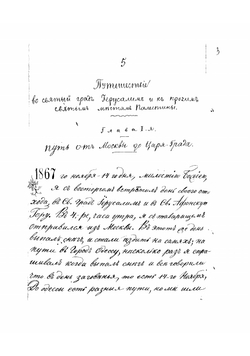 3
5
Путешествiе
во святый градъ Iерусалимъ и къ прочимъ
святымъ мѣстамъ Палестины.
Глава 1я.
путь отъ Москвы до Царя-Града.
1867 го ноября - 14 го дня, милостiю Божiею,
я съ восторгомъ встрѣтилъ день своего от-
хода, въ Св. Градъ Iерусалимъ и въ Св. Аѳонскую
Гору. Въ 4-ре, часа утра, я съ товарищемъ
отправился изъ Москвы. Въ этотъ же день
выпалъ снѣгъ, и стали ѣздить на саняхъ; на
пути въ Городъ Одессу, нѣсколько разъ я спра-
шивалъ когда выпалъ снѣгъ и все говорили
что въ день заговѣнья, то есть 14-го Ноября,
До одессы есть разныя пути, но мы шли